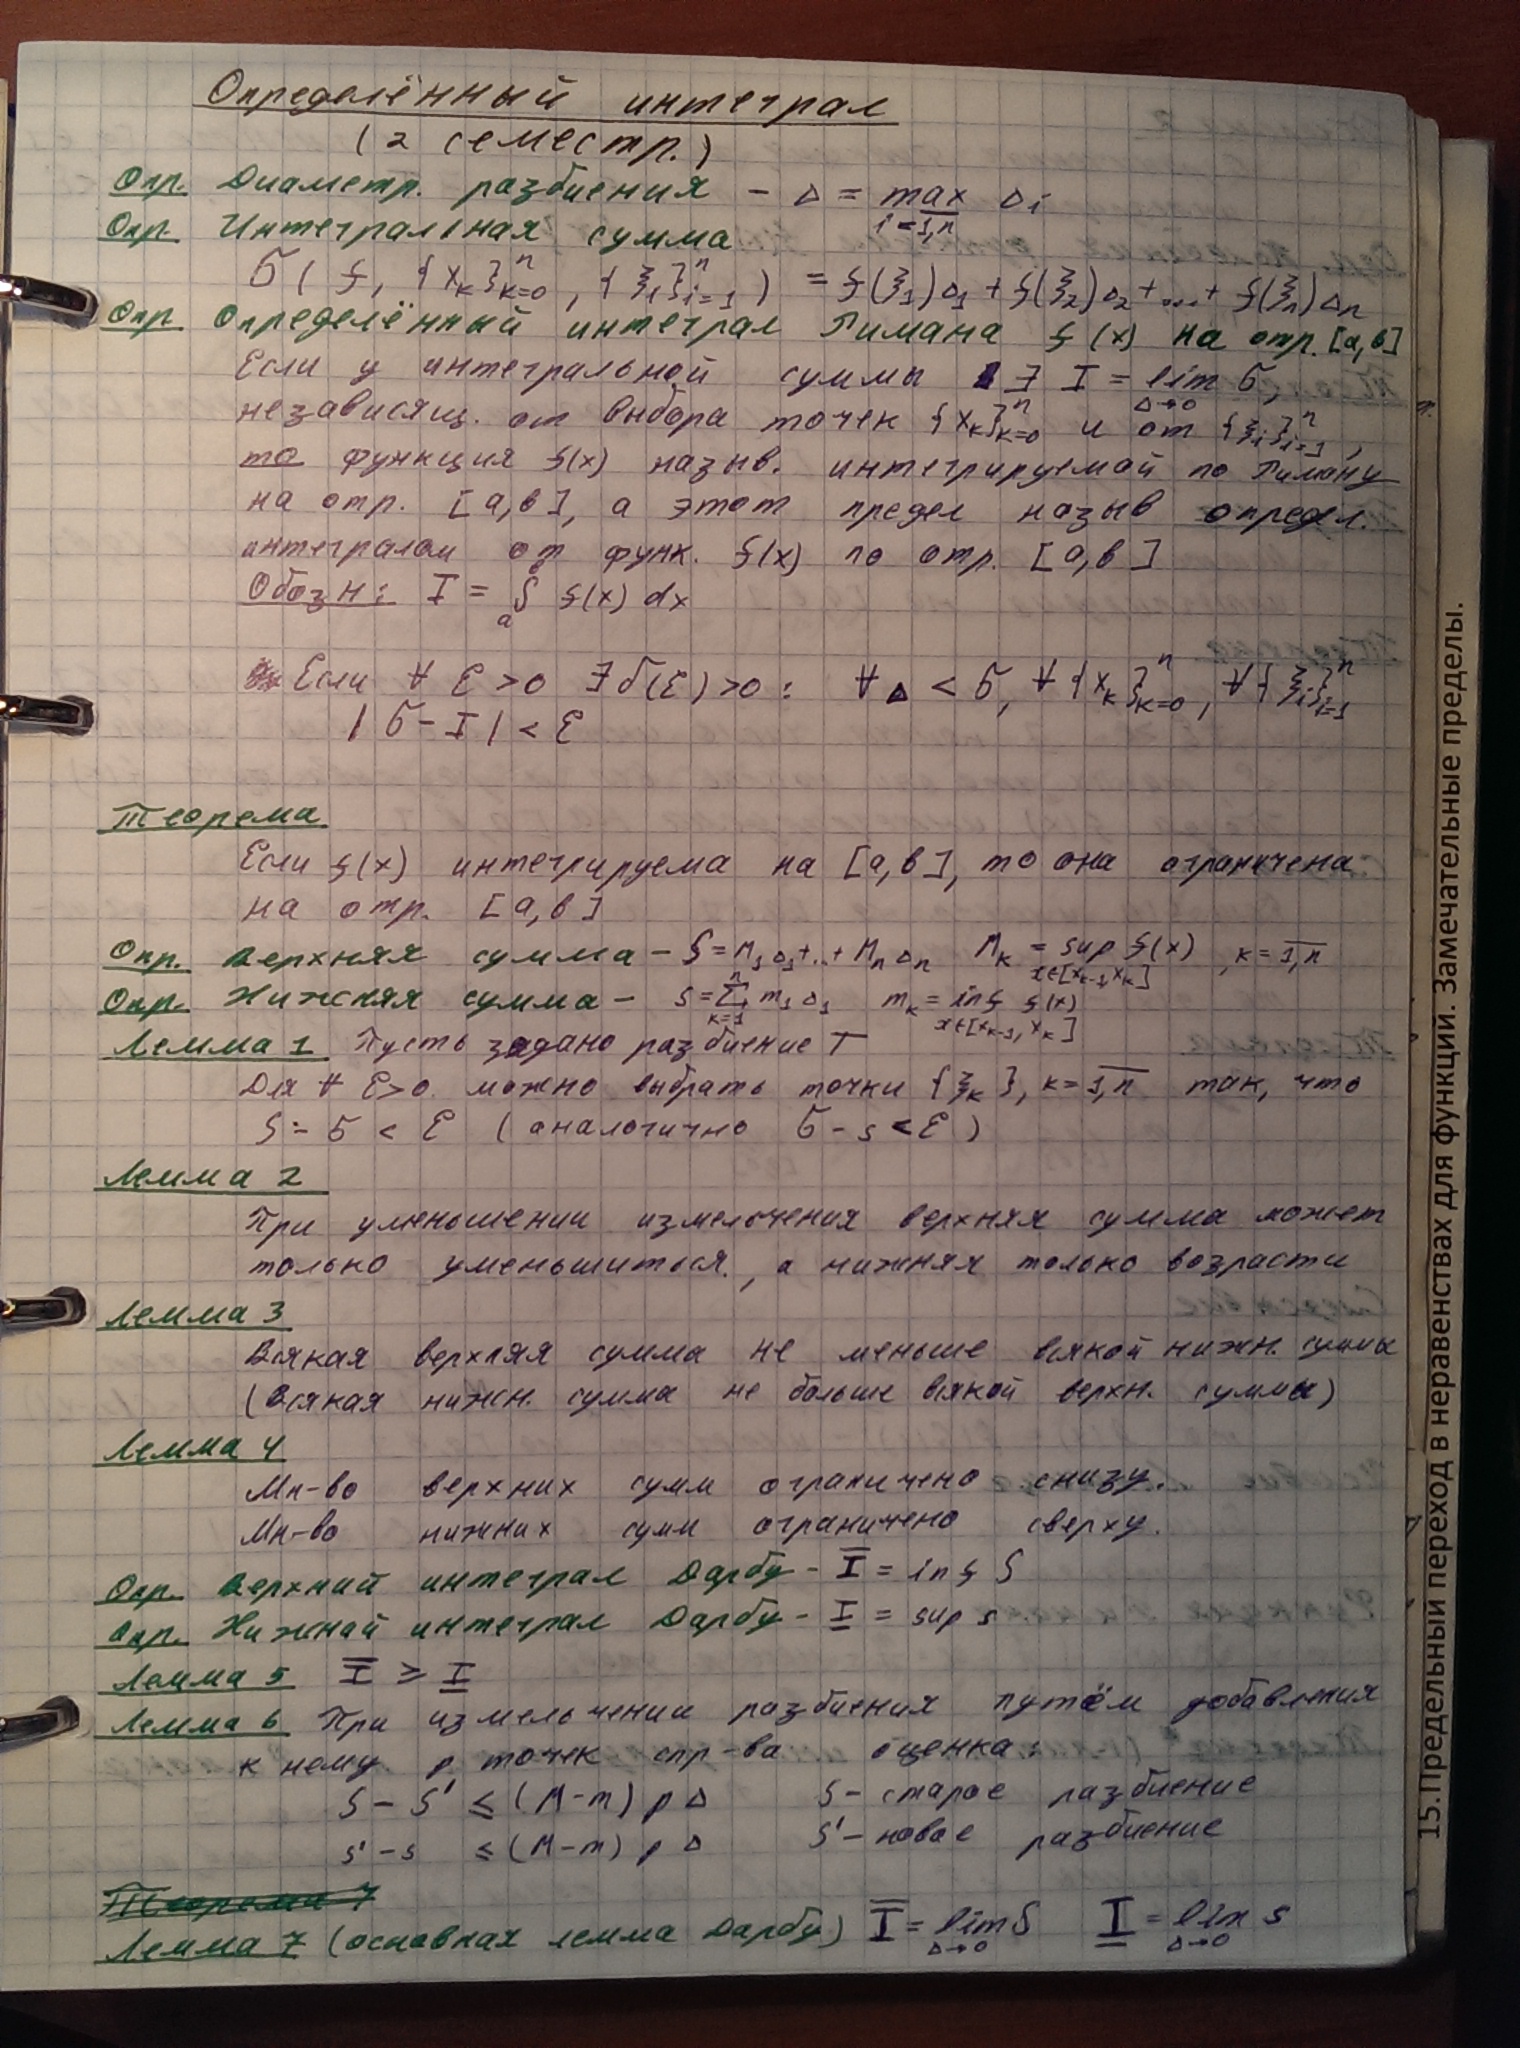 Определённый интеграл
(2 семестр.)
Опр. Диаметр. разбиения - Δ = max Δi
i=1,n
Опр Интегральная сумма
σ(f, {x_k}ⁿ_{k=0}, {ξ_i}ⁿ_{i=1}) = f(ξ₁)Δ₁ + f(ξ₂)Δ₂ + ... + f(ξn)Δn
Опр Определённый интеграл Римана f(x) на отр. [a,b]
Если у интегральной суммы ∃ I = lim σ,
Δ→0
независящ. от выбора точек {x_k}ⁿ_{k=0} и от {ξ_i}ⁿ_{i=1},
то функция f(x) назыв. интегрируемой по Риману
на отр. [a,b], а этот предел назыв определ.
интегралом от функ. f(x) по отр. [a,b]
Обозн: I = ∫_a^b f(x) dx
Если ∀ ε>0 ∃ δ(ε)>0 : ∀ Δ < δ, ∀{x_k}ⁿ_{k=0}, ∀{ξ_i}ⁿ_{i=1}
|σ - I| < ε
Теорема
Если f(x) интегрируема на [a,b], то она ограничена
на отр. [a,b]
Опр. Верхняя сумма - S = M₁Δ₁+...+ MnΔn M_k = sup f(x), k = 1,n
x∈[x_{k-1}, x_k]
Опр. Нижняя сумма - s = Σ_{k=1}^n m₁Δ₁ m_k = inf f(x)
x∈[x_{k-1}, x_k]
Лемма 1 Пусть задано разбиение T
Для ∀ ε>0 можно выбрать точки {ξ_k}, k = 1,n так, что
S - σ < ε (аналогично σ - s < ε)
Лемма 2
При уменьшении измельчения верхняя сумма может
только уменьшиться., а нижняя только возрасти
Лемма 3
Всякая верхняя сумма не меньше всякой нижн. суммы
(Всякая нижн. сумма не больше всякой верхн. суммы)
Лемма 4
Мн-во верхних сумм ограничено снизу.
Мн-во нижних сумм ограничено сверху.
Опр. Верхний интеграл Дарбу - I̅ = inf S
Опр. Нижний интеграл Дарбу - I̲ = sup s
Лемма 5 I̅ ≥ I̲
Лемма 6 При измельчении разбиения путём добавления
к нему p точек спр-ва оценка:
S - S' ≤ (M-m) p Δ S - старое разбиение
s' - s ≤ (M-m) p Δ S' - новое разбиение
Теорема 7
Лемма 7 (основная лемма Дарбу) I̅ = lim S I̲ = lim s
Δ→0 Δ→0
15.Предельный переход в неравенствах для функции. Замечательные пределы.